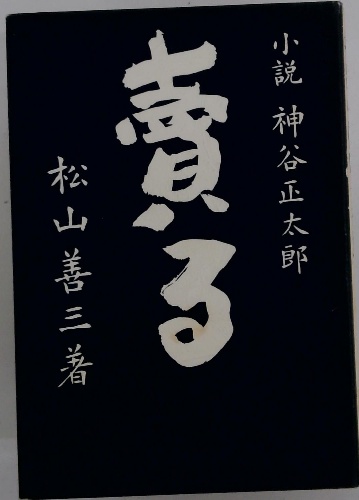 小説 神谷正太郎
賣る
松山善三著